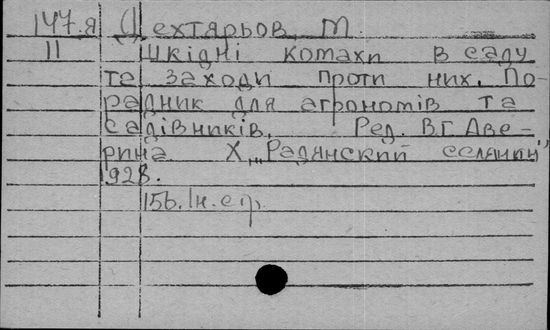 147.я Дехтярьов, М.
II Шкідні комахи в саду
та заходи проти них. По-
радник для агрономів та
садівників. Ред. В.Г. Аве-
рина Х., „Радянский селянин"
1928.
156. ін. с.